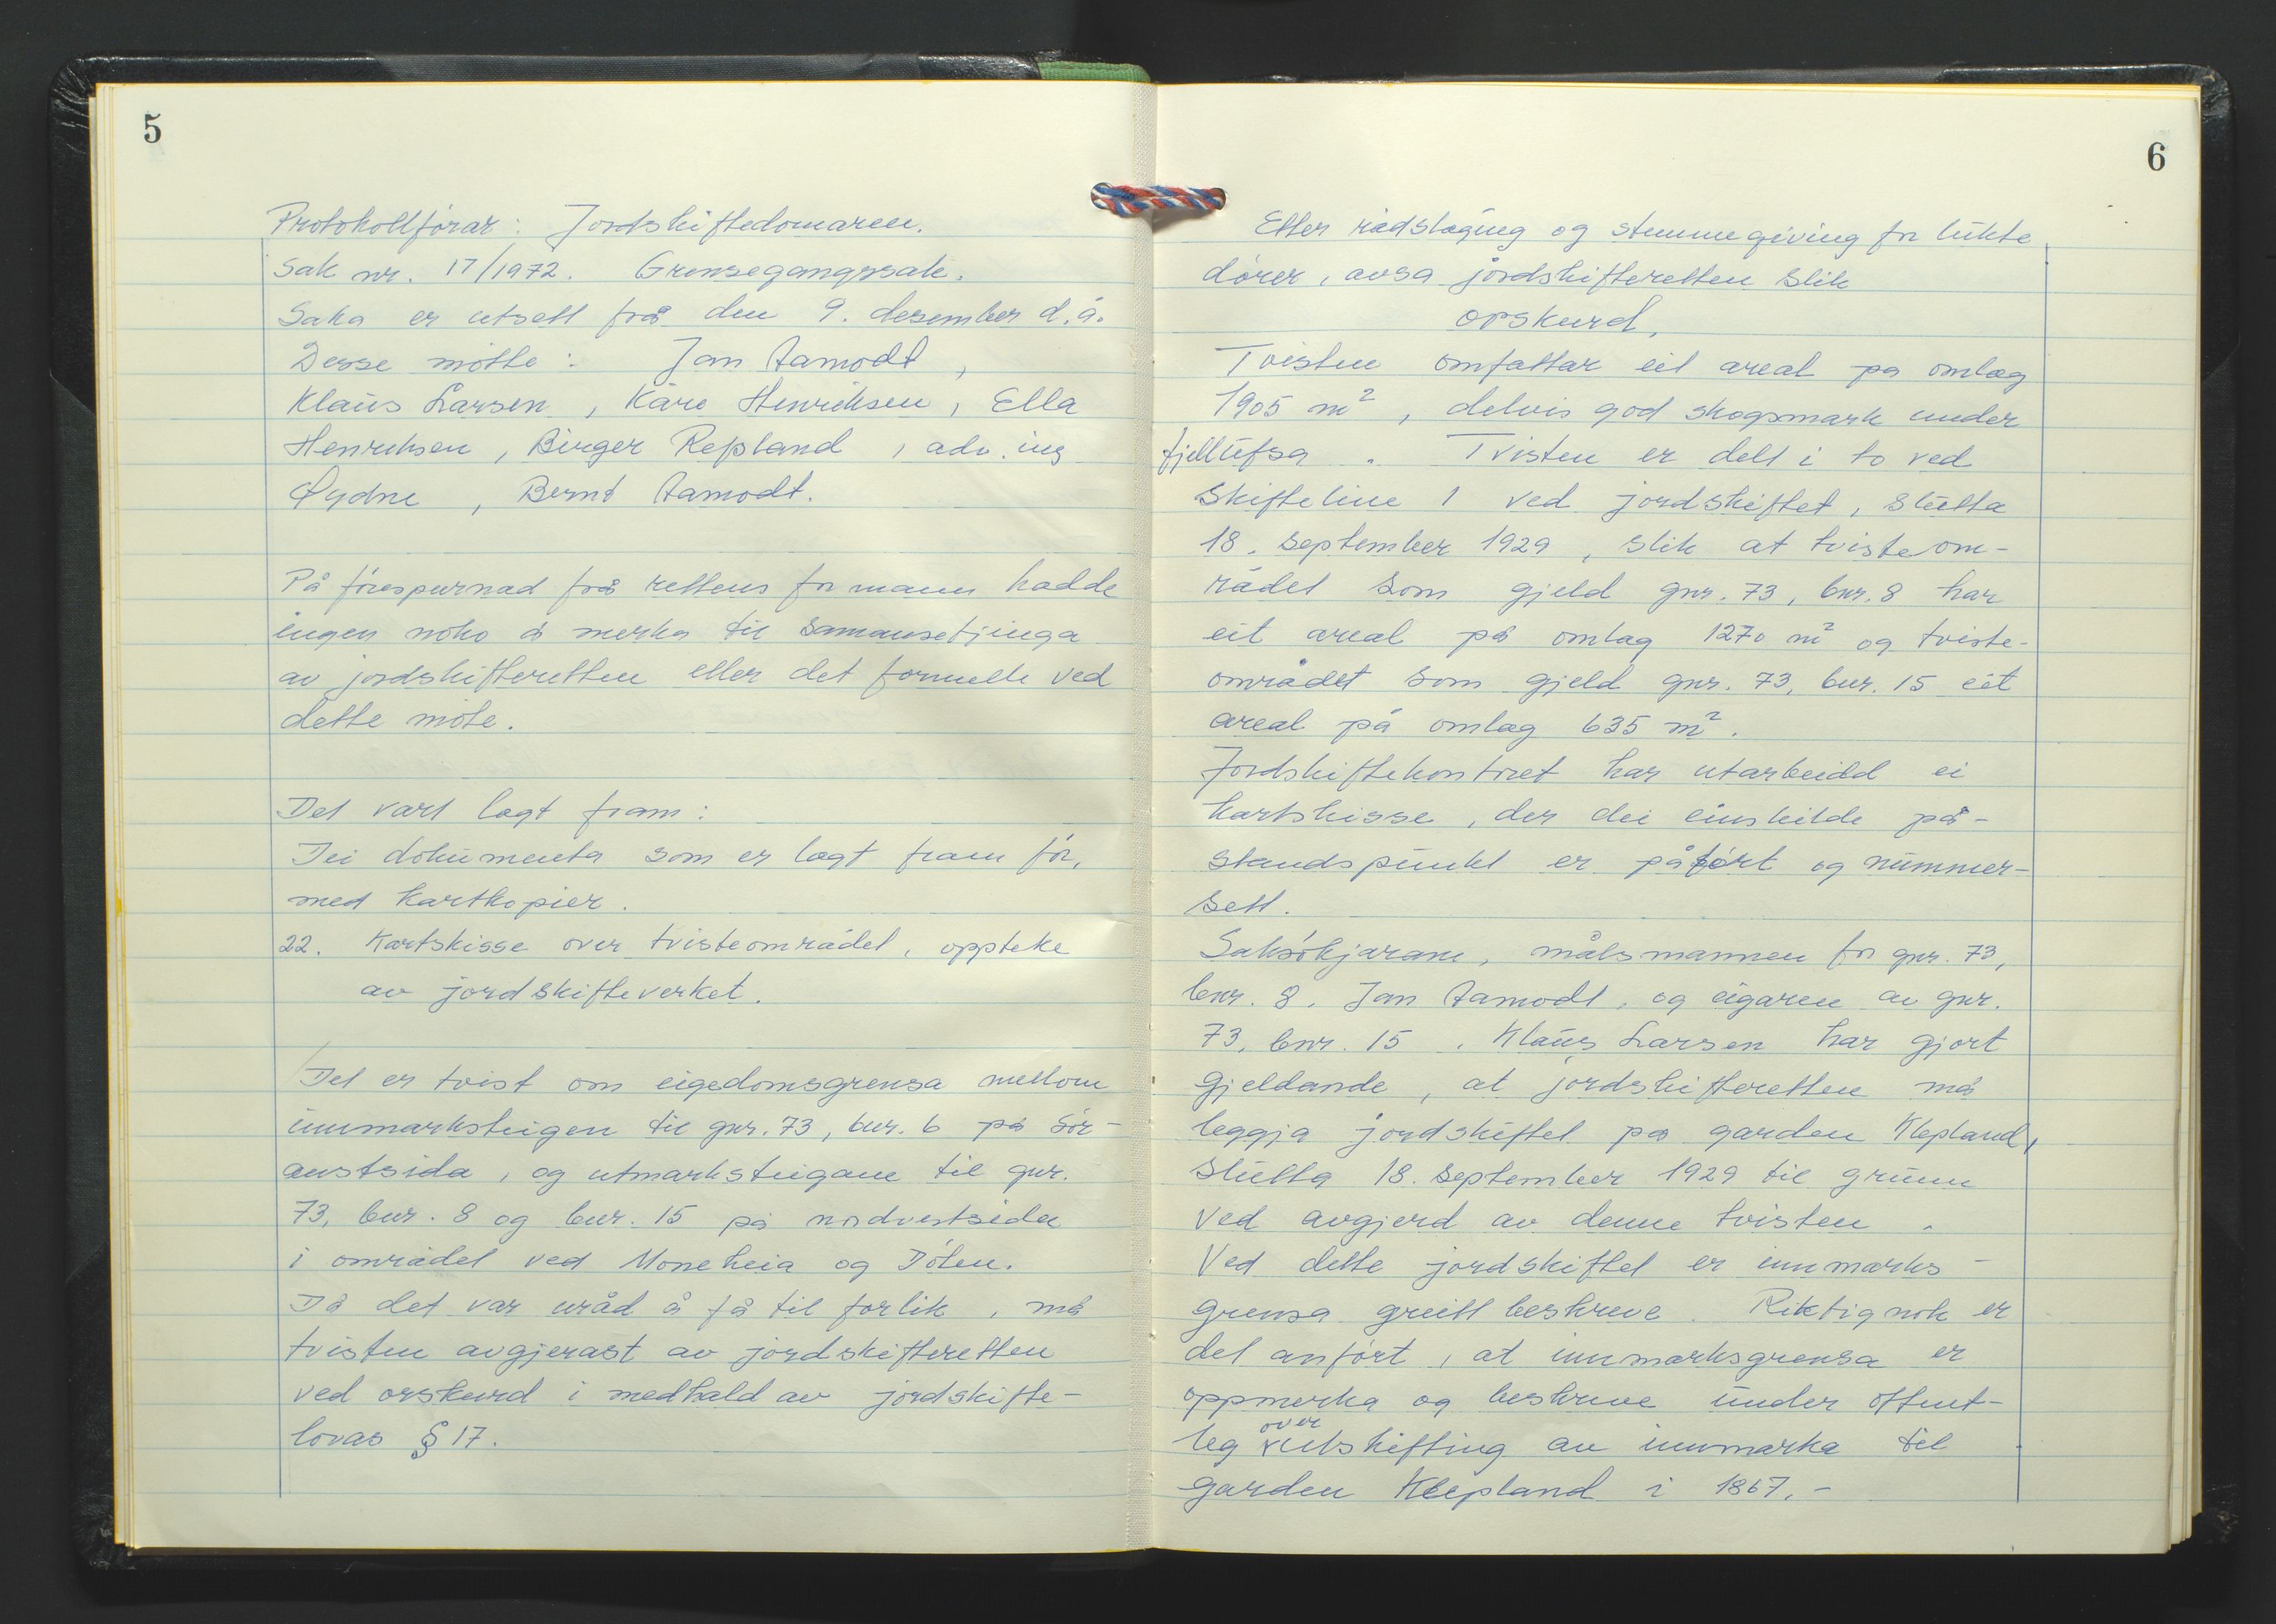 5
Protokollfórar: Jordskiftedomaren.
Sak nr. 17/1972. Grensegangssak.
Saka er utsett frå den 9. desember d.å.
Desse mótte: Jan Aamodt,
Klaus Larsen, Kåre Henriksen, Ella
Henriksen, Birger Repland, adv. ing
Øydne, Bernt Aamodt.
På fórespurnad frå rettens formann hadde
ingen noko å merka til samansetjinga
av jordskifteretten eller det formelle ved
dette móte.
Det vart lagt fram:
Dei dokumenta som er lagt fram fór,
med kartkopier.
22. Kartskisse over tvisteområdet, oppteke
av jordskifteverket.
Det er tvist om eigedomsgrensa mellom
innmarksteigen til gnr. 73, bnr. 6 på sór-
austsida, og utmarksteigane til gnr.
73, bnr. 8 og bnr. 15 på nordvestsida
i området ved Moneheia og Dóten.
Då det var uråd å få til forlik, må
tvisten avgjerast av jordskifteretten
ved orskurd i medhald av jordskifte-
lovas § 17.
6
Etter rådslaging og stemmegiving for lukte
dórer, avsa jordskifteretten slik
orskurd.
Tvisten omfattar eit areal på omlag
1905 m², delvis god skogsmark under
fjellufsa. Tvisten er delt i to ved
skifteline 1 ved jordskiftet, slutta
18. september 1929, slik at tvisteom-
rådet som gjeld gnr. 73, bnr. 8 har
eit areal på omlag 1270 m² og tviste-
området som gjeld gnr. 73, bnr. 15 eit
areal på omlag 635 m².
Jordskiftekontoret har utarbeidd ei
kartskisse, der dei einskilde på-
standspunkt er påfórt og nummer-
sett.
Saksókjarane, målsmannen for gnr. 73,
bnr. 8. Jan Aamodt, og eigaren av gnr.
73, bnr. 15, Klaus Larsen har gjort
gjeldande, at jordskifteretten må
leggja jordskiftet på garden Klepland,
slutta 18. september 1929 til grunn
ved avgjerd av denne tvisten.
Ved dette jordskiftet er innmarks-
grensa greitt beskreve. Riktignok er
det anfórt, at innmarksgrensa er
oppmerka og beskreve under offent-
leg over utskifting av innmarka til
garden Klepland i 1867.-